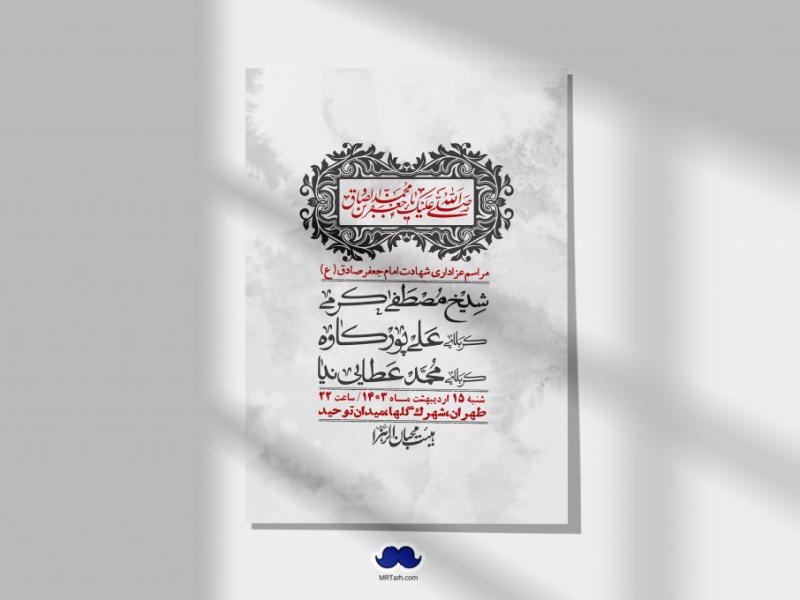 صلی الله علیک یا جعفر بن محمد الصادق
مراسم عزاداری شهادت امام جعفر صادق (ع)
شیخ مصطفی کرمی
کربلائی علی پورکاوه
کربلائی محمد عطایی نیا
شنبه ۱۵ اردیبهشت ماه ۱۴۰۳ / ساعت ۲۲
طهران، شهرک گلها، میدان توحید
هیئت محبان الزهرا
MRTarh.com